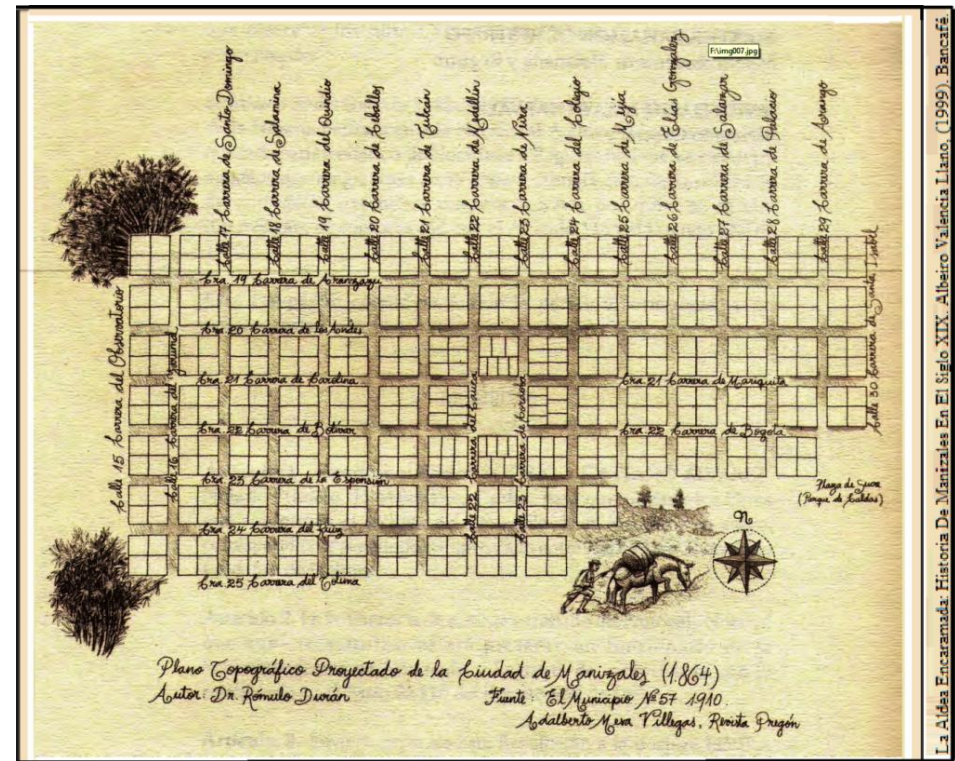 F:\img007.jpg
Calle 17 Carrera de Santo Domingo
Calle 18 Carrera de Salamina
Calle 19 Carrera del Quindio
Calle 20 Carrera de Ceballos
Calle 21 Carrera de Tulcán
Calle 22 Carrera de Medellín
Calle 23 Carrera de Neira
Calle 24 Carrera del Colegio
Calle 25 Carrera de Mejia
Calle 26 Carrera de Elias Gonzalez
Calle 27 Carrera de Salazar
Calle 28 Carrera de Palacio
Calle 29 Carrera de Arango
Calle 30 Carrera de Santa Isabel
Calle 15 Carrera del Observatorio
Calle 16 Carrera del
Cra. 19 Carrera de Aranzazu
Cra 20 Carrera de los Andes
Cra 21 Carrera de Carolina
Cra 21 Carrera de Mariquita
Cra 22 Carrera de Bolivar
Cra 22 Carrera de Bogotá
Cra 23 Carrera de la Esponsión
Cra 24 Carrera del Ruiz
Cra 25 Carrera del Tolima
Calle 22 Carrera del Cauca
Calle 23 Carrera de Cordoba
Plaza de Sucre
(Parque de Caldas)
N
Plano Topográfico Proyectado de la Ciudad de Manizales (1.864)
Autor: Dr. Rómulo Durán
Fuente: El Municipio Nº 57 1910.
Adalberto Mesa Villegas, Revista Pregón
La Aldea Encaramada: Historia De Manizales En El Siglo XIX. Albeiro Valencia Llano, (1999). Bancafé.